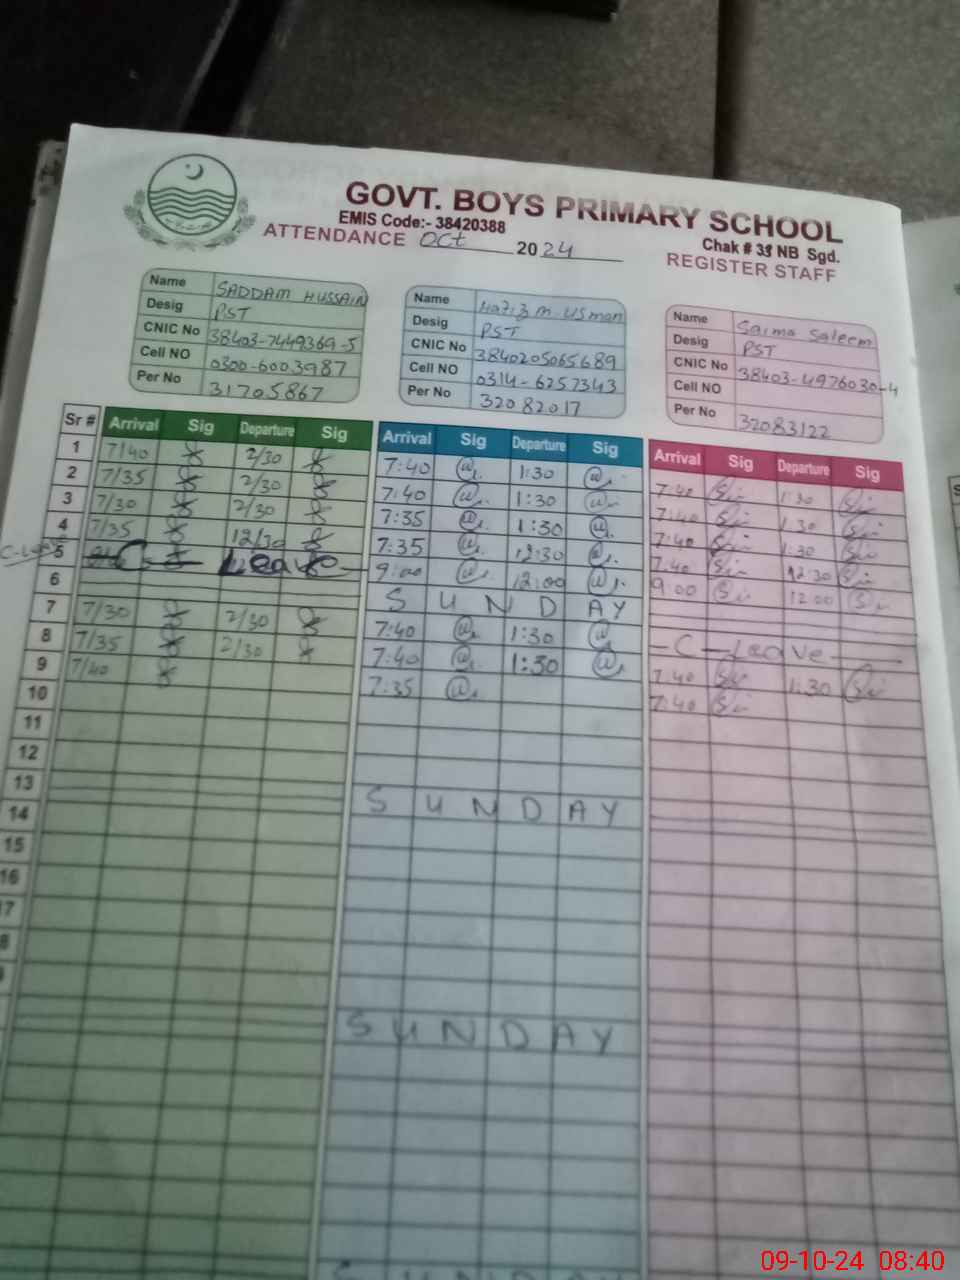 GOVT. BOYS PRIMARY SCHOOL
EMIS Code:- 38420388
Chak # 38 NB Sgd.
ATTENDANCE Oct 2024 REGISTER STAFF
Name SADDAM HUSSAIN
Desig PST
CNIC No 38403-7449369-5
Cell NO 0300-6003987
Per No 31705867
Name Hafiz M. Usman
Desig PST
CNIC No 3840205065689
Cell NO 0314-6257343
Per No 32082017
Name Saima Saleem
Desig PST
CNIC No 38403-4976030-4
Cell NO
Per No 32083122
Sr # Arrival Sig Departure Sig Arrival Sig Departure Sig Arrival Sig Departure Sig
1 7/40 2/30 7:40 1:30 7:40 1:30
2 7/35 2/30 7:40 1:30 7:40 1:30
3 7/30 2/30 7:35 1:30 7:40 1:30
4 7/35 12/30 7:35 12:30 7:40 12:30
5 C - Leave 9:00 12:00 9:00 12:00
6 SUNDAY
7 7/30 2/30 7:40 1:30 - C - Leave
8 7/35 2/30 7:40 1:30 7:40 1:30
9 7/40 7:35 7:40
10
11
12
13 SUNDAY
14
15
16
17
8
SUNDAY
SUNDAY
09-10-24 08:40